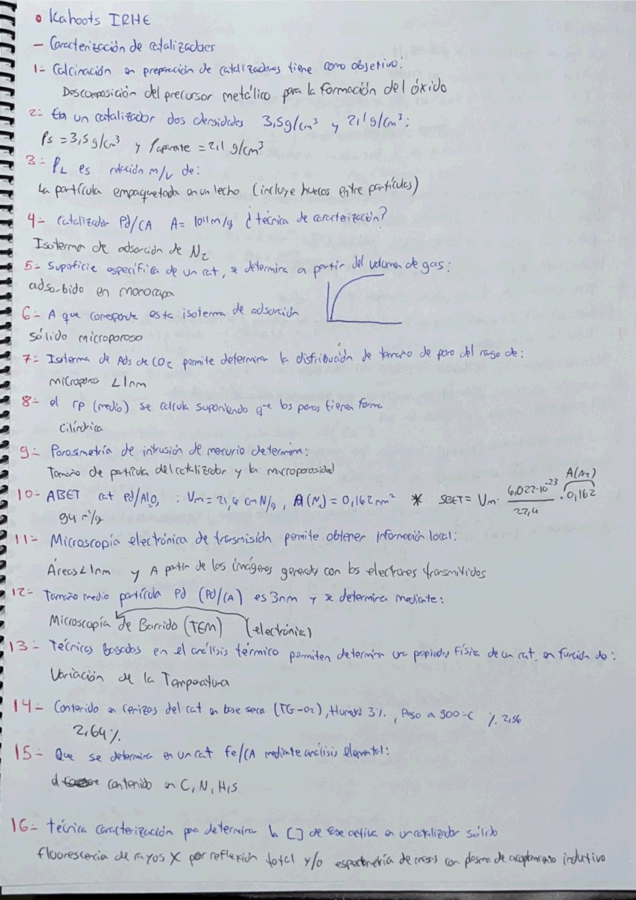 • Kahoots IRHE
- Caracterización de catalizadores
1- Calcinación en preparación de catalizadores tiene como objetivo:
Descomposición del precursor metálico para la formación del óxido
2- En un catalizador dos densidades 3,5g/cm³ y 2,1 g/cm³:
ρs = 3,5 g/cm³ y ρaparente = 2,1 g/cm³
3- ρL es relación m/V de:
La partícula empaquetada en un lecho (incluye huecos entre partículas)
4- Catalizador Pd/CA A= 1011 m²/g ¿técnica de caracterización?
Isoterma de adsorción de N₂
5- Superficie específica de un cat, se determina a partir del volumen de gas:
adsorbido en monocapa
6- A que corresponde esta isoterma de adsorción
sólido microporoso
7- Isoterma de Ads de CO₂ permite determinar la distribución de tamaño de poro del rango de:
microporos <1nm
8- el rp (medio) se calcula suponiendo que los poros tienen forma
cilíndrica
9- Porosimetría de intrusión de mercurio determina:
Tamaño de partícula del catalizador y la macroporosidad
10- ABET cat Pd/Al₂O₃ : Vm = 21,6 cm³N/g, A(N₂) = 0,162 nm² * SBET = Vm · 6,022·10^23 / 22,4 · 0,162 A(N₂)
94 m²/g
11- Microscopía electrónica de transmisión permite obtener información local:
Áreas <1nm y A partir de las imágenes generadas con los electrones transmitidos
12- Tamaño medio partícula Pd (Pd/CA) es 3nm y se determina mediante:
Microscopía de Barrido (TEM) (electrónica)
13- Técnicas basadas en el análisis térmico permiten determinar una propiedad física de un cat. en función de:
Variación de la Temperatura
14- Contenido en cenizas del cat en base seca (TG-O₂), Humedad 3%, Peso a 900ºC % 2,56
2,64%
15- Que se determina en un cat Fe/CA mediante análisis elemental:
contenido en C, N, H, S
16- técnica caracterización para determinar la [] de fase activa en un catalizador sólido
fluorescencia de rayos X por reflexión total y/o espectrometría de masas con plasma de acoplamiento inductivo